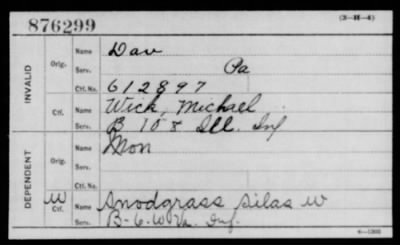 876299
(3-H-4)
INVALID
Orig.
Name Dav
Serv. Pa
Ctf. No. 612897
Ctf.
Name Wick, Michael
Serv. B 108 Ill. Inf
DEPENDENT
Orig.
Name Mon
Serv.
Ctf. No.
W Ctf.
Name Snodgrass Silas W
Serv. B-6-W Va. Inf.